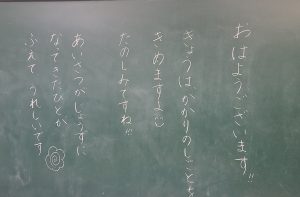 おはようございます!!
きょうは、かかりのしごとを
きめますよ
たのしみですね!!
あいさつがじょうずに
なってきたひとが
ふえて うれしいです